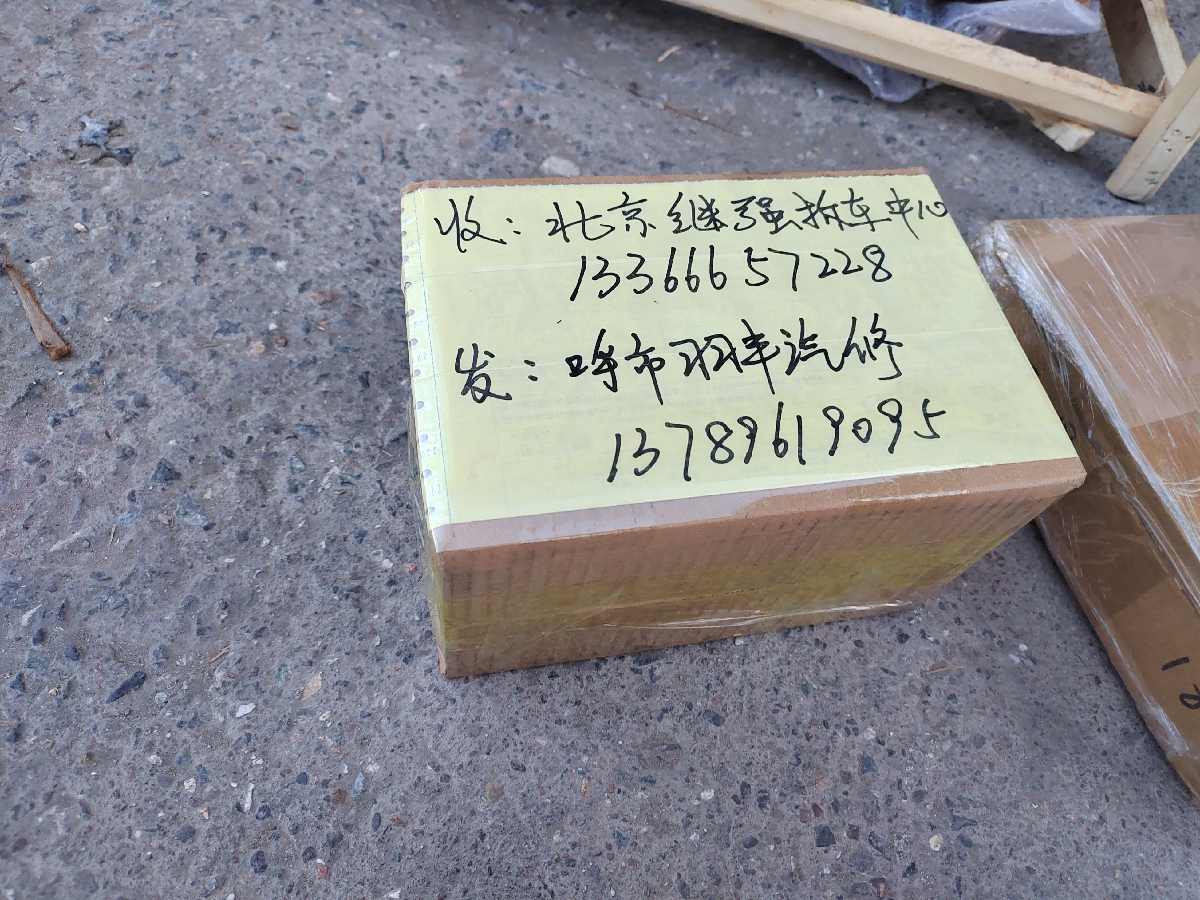 收：北京继强拆车中心
13366657228
发：呼市羽丰汽修
13789619095